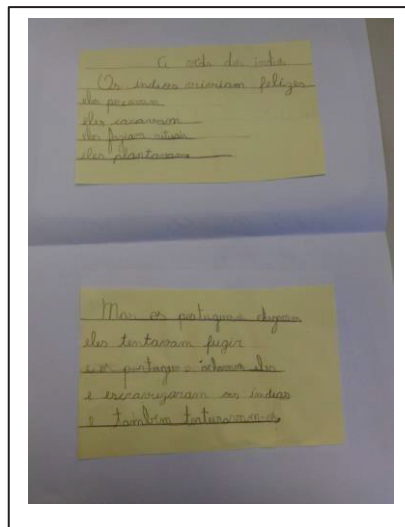 A vida dos índios
Os índices viveriam felizes
eles pescavam
eles cacavam
eles faziam rituais
eles plantavam
Mas os portugueses chegaram
eles tentavam fugir
e os portugues achavam eles
e escravizaram os índios
e também torturaram-os